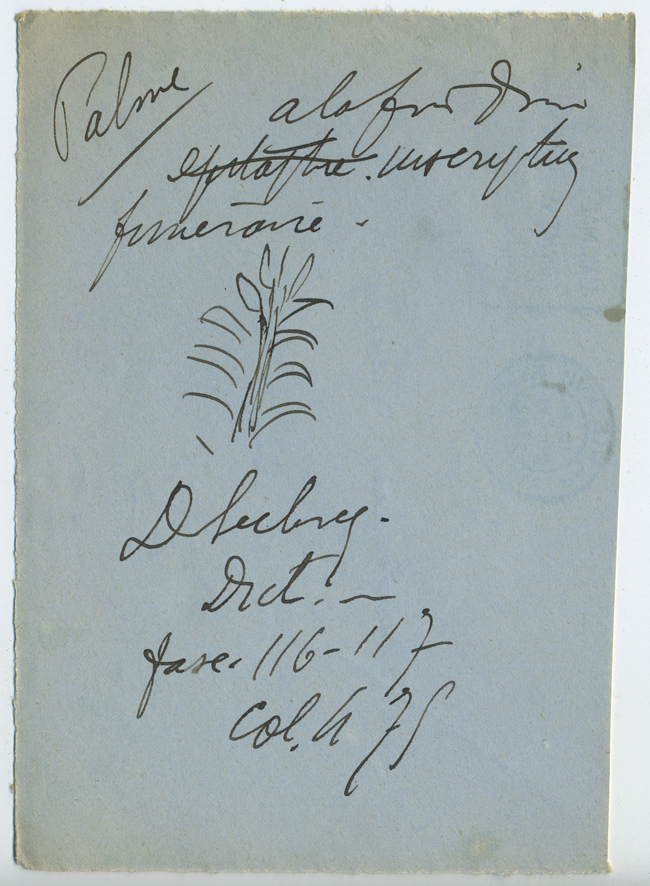 Palme
a la fin d'une
epitaphe. inscription
funeraire.
D Leclercq.
Dict. —
fasc. 116-117
Col. 975